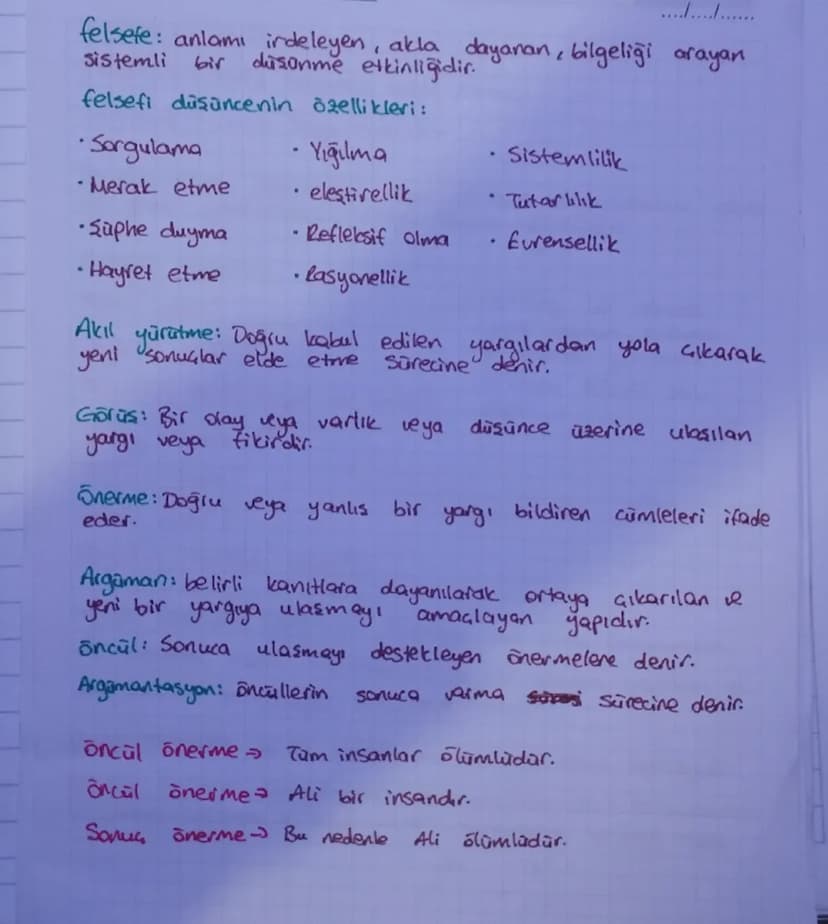 ..../..../......
felsefe: anlamı irdeleyen, akla dayanan, bilgeliği arayan
sistemli bir düşünme etkinliğidir.
felsefi düşüncenin özellikleri:
• Sorgulama
• Merak etme
• Şüphe duyma
• Hayret etme
• Yığılma
• eleştirellik
• Refleksif olma
• Rasyonellik
• Sistemlilik
• Tutarlılık
• Evrensellik
Akıl yürütme: Doğru kabul edilen yargılardan yola çıkarak
yeni sonuçlar elde etme sürecine denir.
Görüş: Bir olay veya varlık veya düşünce üzerine ulaşılan
yargı veya fikirdir.
Önerme: Doğru veya yanlış bir yargı bildiren cümleleri ifade
eder.
Argüman: belirli kanıtlara dayanılarak ortaya çıkarılan ve
yeni bir yargıya ulaşmayı amaçlayan yapıdır.
öncül: Sonuca ulaşmayı destekleyen önermelere denir.
Argümantasyon: öncüllerin sonuca varma sürecine denir.
öncül önerme → Tüm insanlar ölümlüdür.
öncül önerme → Ali bir insandır.
Sonuç önerme → Bu nedenle Ali ölümlüdür.